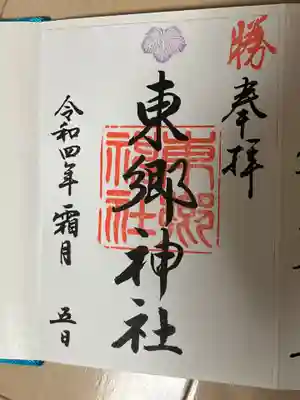 勝
奉拝
東郷神社
東郷神社
令和四年霜月五日